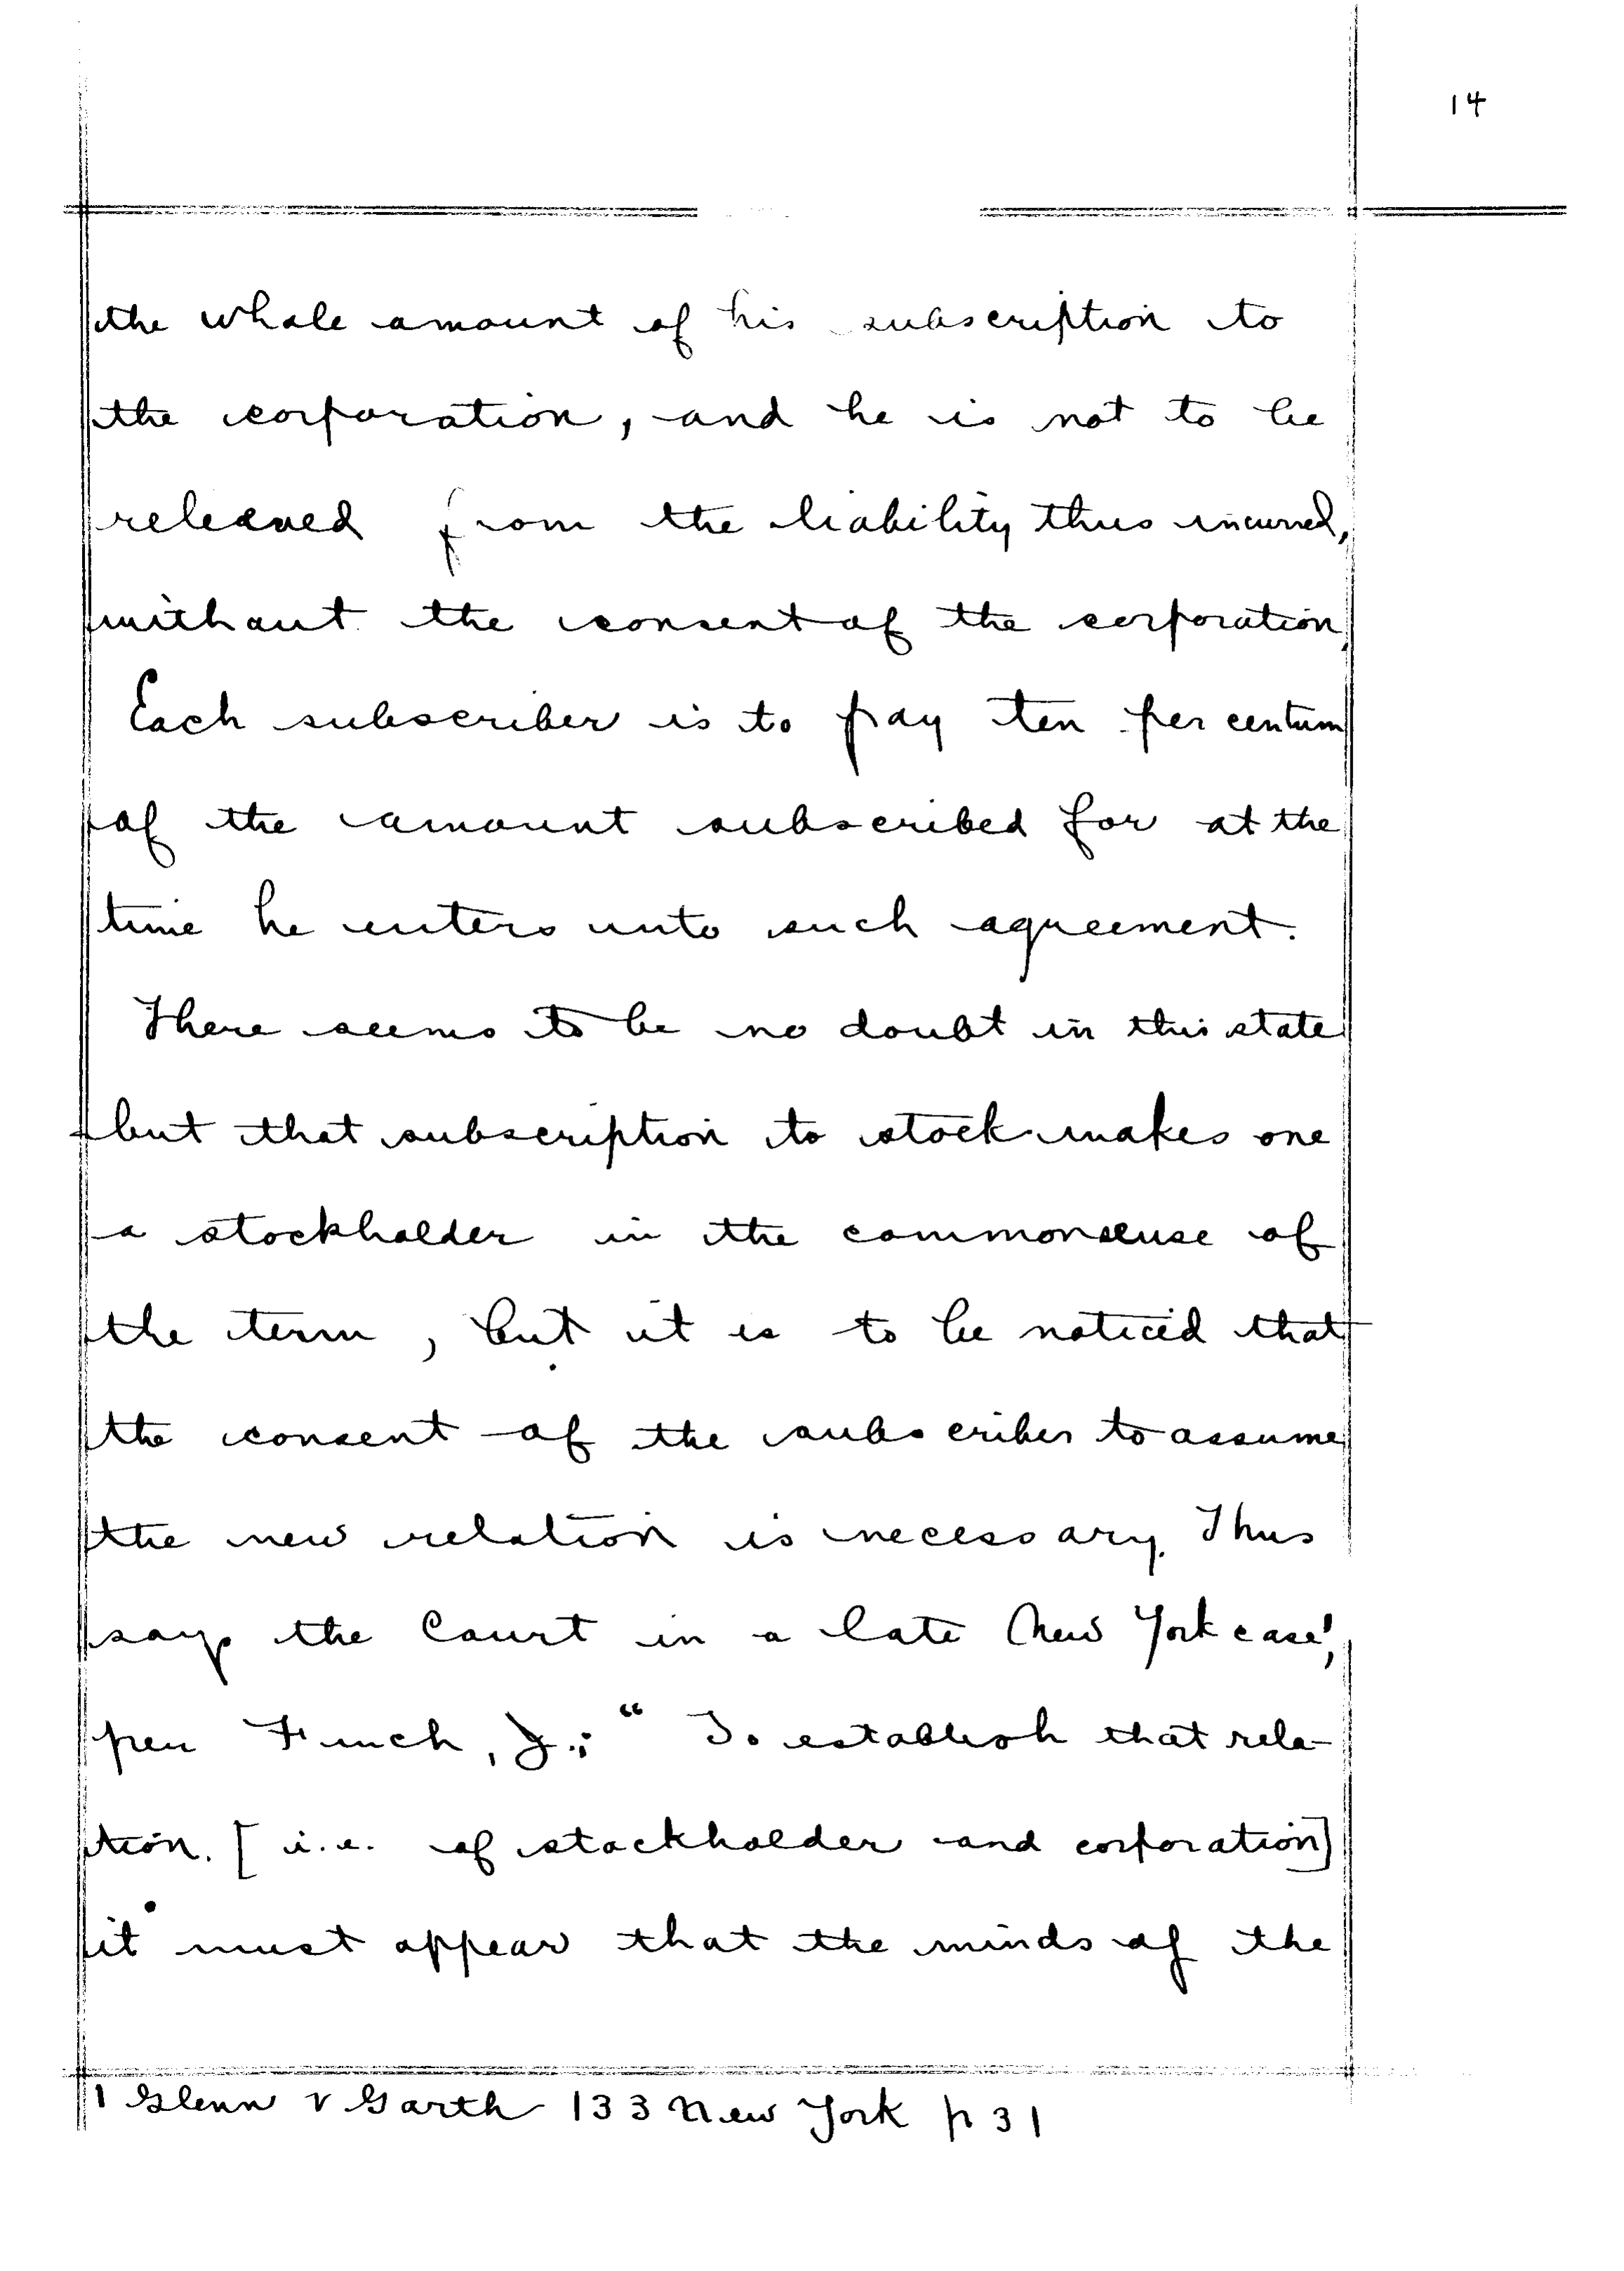 14
the whole amount of his subscription to
the corporation, and he is not to be
released from the liability thus incurred,
without the consent of the corporation,
Each subscriber is to pay ten per centum
of the amount subscribed for at the
time he enters into such agreement.
There seems to be no doubt in this state
but that subscription to stock makes one
a stockholder in the common sense of
the term, but it is to be noticed that
the consent of the subscriber to assume
the new relation is necessary. Thus
says the Court in a late New York case¹,
per Finch, J.; “ To establish that rela-
tion. [ i.e. of stockholder and corporation]
it must appear that the minds of the
1 Glenn v Garth 133 New York p 31